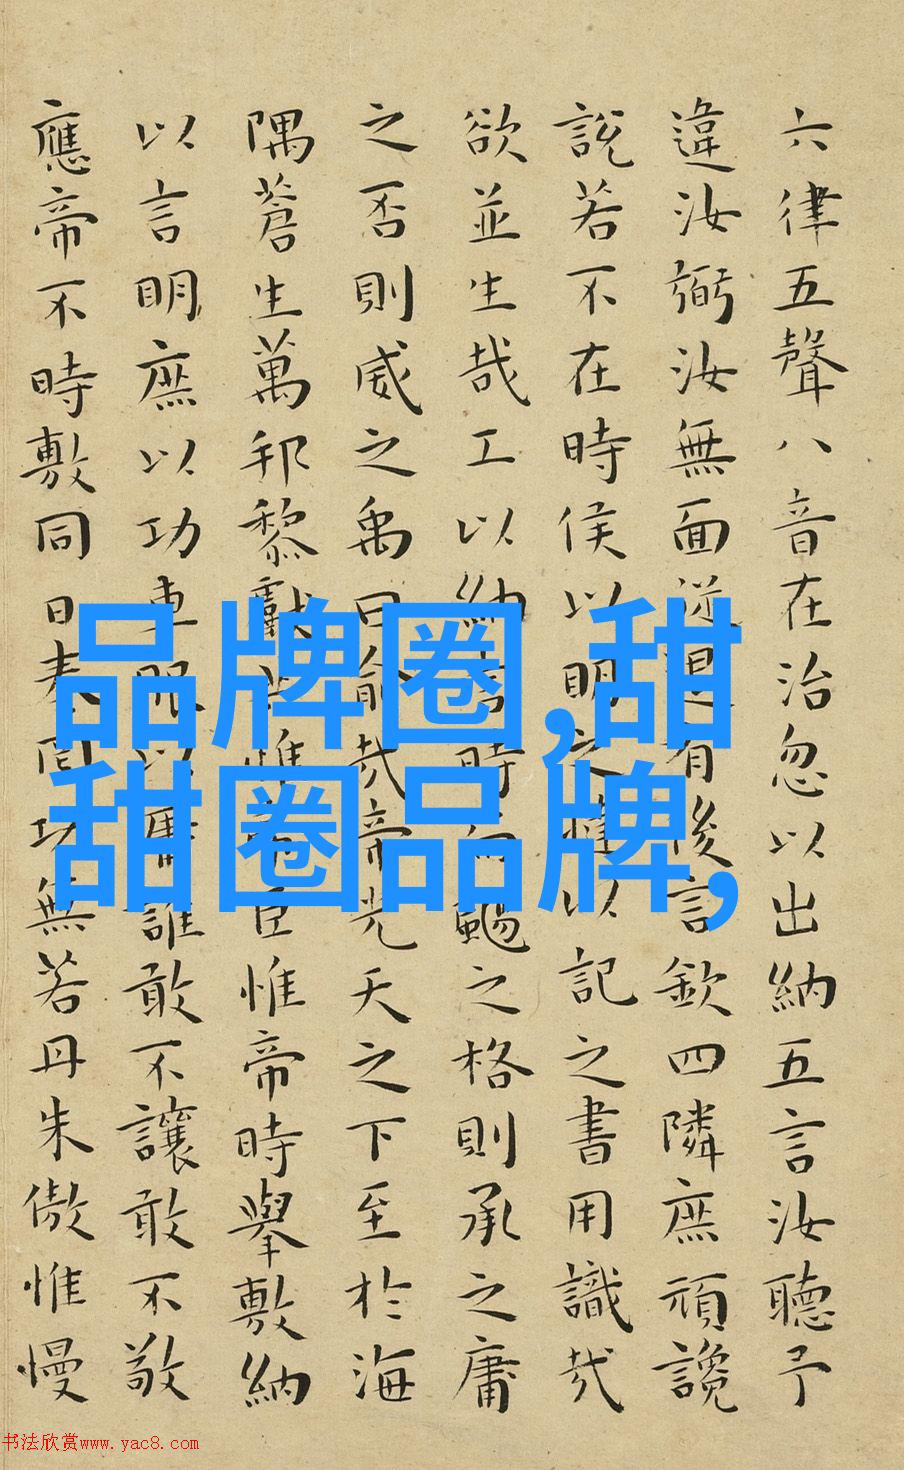 六律五聲八音在治忽以出納五言汝聽予
違汝弼汝無面從退有後言欽四隣庶頑讒
說若不在時侯以明之撻以記之書用識哉
欲並生哉工以納言時而颺之格則承之庸
之否則威之禹曰俞哉帝光天之下至於海
隅蒼生萬邦黎獻共惟帝臣惟帝時舉敷納
以言明庶以功車服以庸誰敢不讓敢不敬
應帝不時敷同日奏罔功無若丹朱傲惟慢
品牌圈,甜
甜圈品牌,
书法欣赏www.yac8.com